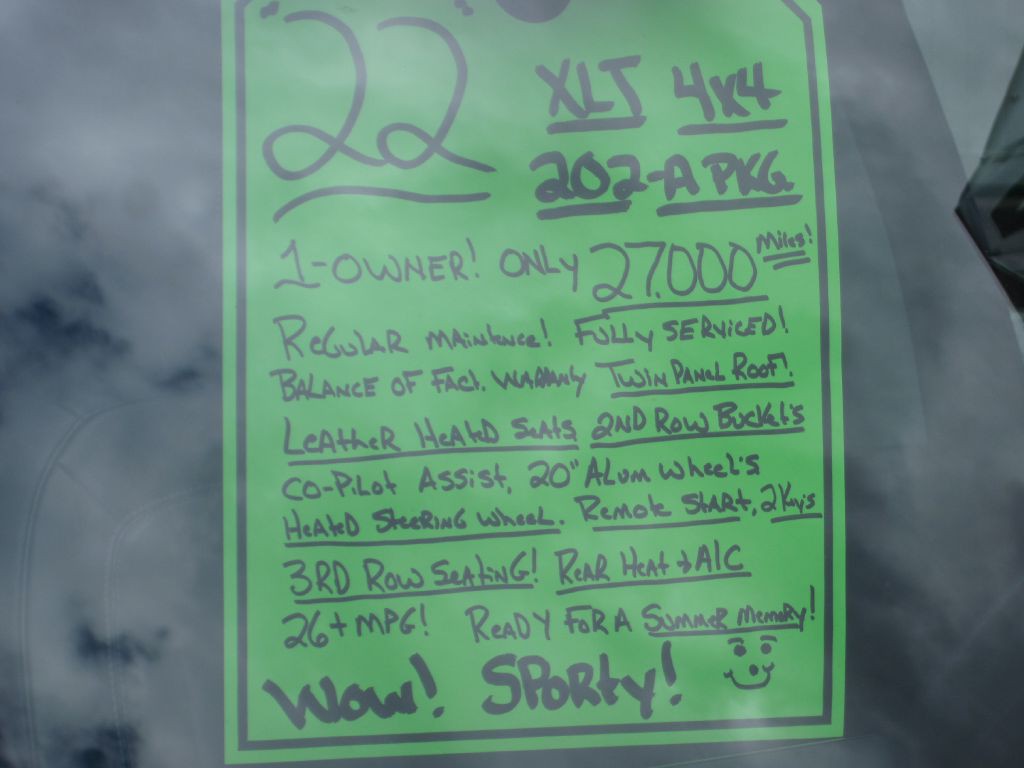 "22" XLT 4x4
202-A PKG
1-OWNER! ONLY 27.000 Miles!
REGULAR MAintence! FULLY SERVICED!
BALANCE OF FACt. WARRANty TWIN PANEL ROOF!
LEAtHER HEAtED SEAtS 2ND ROW BUCKEt'S
CO-PILOt ASSIST, 20" ALUM WHEEL'S
HEAtED STEERING WHEEL. REMOtE StARt, 2 KEy'S
3RD ROW SEAtING! REAR HEAt & A/C
26+ MPG! READY FOR A SUMMER MEMORY!
WOW! SPORty!